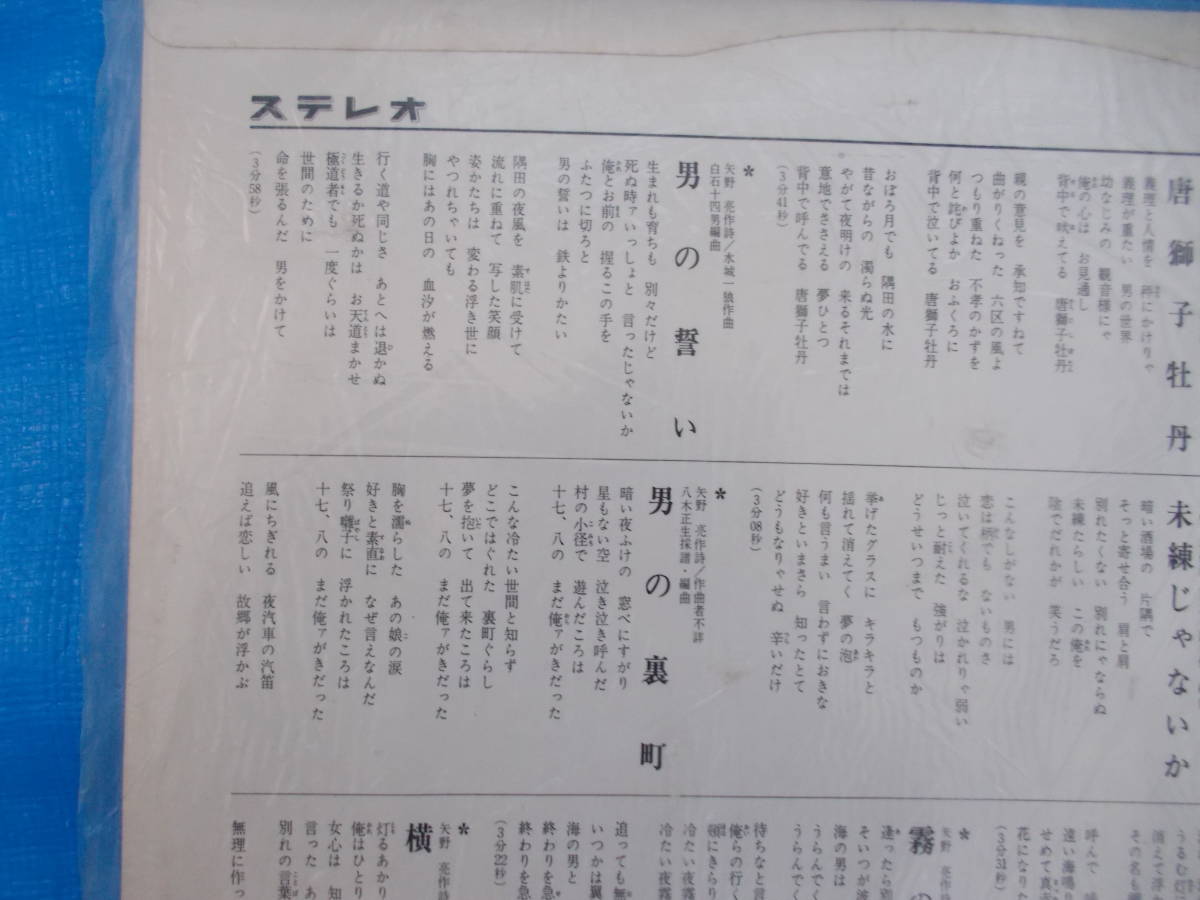 ステレオ
唐獅子牡丹
義理と人情を 秤にかけりゃ
義理が重たい 男の世界
幼なじみの 観音様にゃ
俺の心は お見通し
背中で吠えてる 唐獅子牡丹
親の意見を 承知ですねて
曲がりくねった 六区の風よ
つもり重ねた 不孝のかずを
何と詫びよか おふくろに
背中で泣いてる 唐獅子牡丹
おぼろ月でも 隅田の水に
昔ながらの 濁らぬ光
やがて夜明けの 来るそれまでは
意地でささえる 夢ひとつ
背中で呼んでる 唐獅子牡丹
(3分41秒)
*
矢野 亮作詩/水城一狼作曲
白石十四男編曲
男の誓い
生まれも育ちも 別々だけど
死ぬ時ァいっしょと 言ったじゃないか
俺とお前の 握るこの手を
ふたつに切ろと
男の誓いは 鉄よりかたい
隅田の夜風を 素肌に受けて
流れに重ねて 写した笑顔
姿かたちは 変わる浮き世に
やつれちゃいても
胸にはあの日の 血汐が燃える
行く道や同じさ あとへは退かぬ
生きるか死ぬかは お天道まかせ
極道者でも 一度ぐらいは
世間のために
命を張るんだ 男をかけて
(3分58秒)
未練じゃないか
暗い酒場の 片隅で
そっと寄せ合う 肩と肩
別れたくない 別れにゃならぬ
未練たらしい この俺を
陰でだれかが 笑うだろ
こんなしがない 男には
恋は柄でも ないものさ
泣いてくれるな 泣かれりゃ弱い
じっと耐えた 強がりは
どうせいつまで もつものか
挙げたグラスに キラキラと
揺れて消えてく 夢の泡
何も言うまい 言わずにおきな
好きといまさら 知ったとて
どうもなりゃせぬ 辛いだけ
(3分08秒)
*
矢野 亮作詩/作曲者不詳
八木正生採譜・編曲
男の裏町
暗い夜ふけの 窓べにすがり
星もない空 泣き泣き呼んだ
村の小径で 遊んだころは
十七、八の まだ俺ァがきだった
こんな冷たい世間と知らず
どこではぐれた 裏町ぐらし
夢を抱いて 出て来たころは
十七、八の まだ俺ァがきだった
胸を濡らした あの娘の涙
好きと素直に なぜ言えなんだ
祭り囃子に 浮かれたころは
十七、八の まだ俺ァがきだった
風にちぎれる 夜汽車の汽笛
追えば恋しい 故郷が浮かぶ
うるむ灯
消えて浮か
その名も
呼んで
遠い海鳴り
せめて真
花になりた
(3分31秒)
*
矢野 亮作詩
霧の
逢ったら別
そいつが波
海の男は
うらんでく
うらんでく
待ちなと言
俺らの行く
頬にきらり
冷たい夜霧
冷たい夜霧
追っても無
いつかは翼
海の男と
終わりを急
終わりを急
(3分22秒)
*
矢野 亮作詩
横
灯るあかり
俺はひとり
女心は 知
言った あ
別れの言葉
無理に作っ